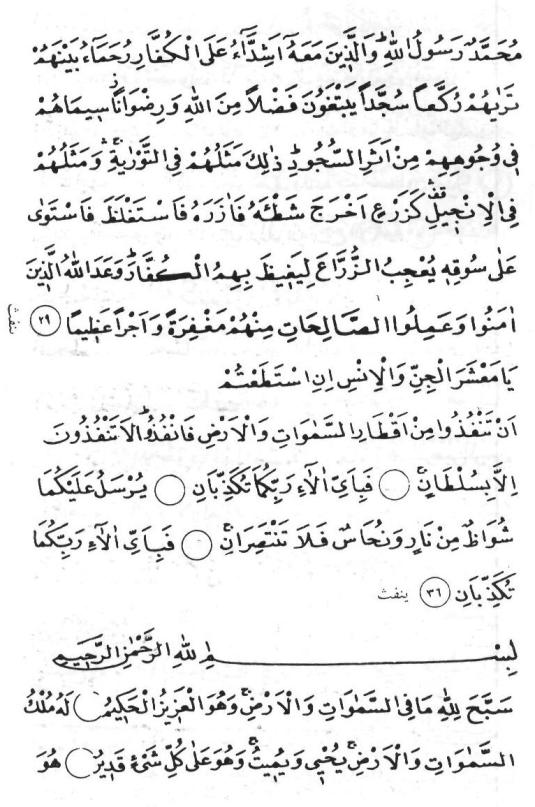 مُحَمَّدٌ رَسُولُ اللهِ ؕ وَالَّذِينَ مَعَهُٓ اَشِدَّٓاءُ عَلَى الْكُفَّارِ رُحَمَٓاءُ بَيْنَهُمْ
تَرٰيهُمْ رُكَّعاً سُجَّداً يَبْتَغُونَ فَضْلاً مِنَ اللهِ وَرِضْوَاناًؗ سِيمَاهُمْ
فِى وُجُوهِهِمْ مِنْ اَثَرِ السُّجُودِؕ ذٰلِكَ مَثَلُهُمْ فِى التَّوْرٰيةِۚ وَمَثَلُهُمْ
فِى الْاِنْجِيلِ كَزَرْعٍ اَخْرَجَ شَطْـَٔهُ فَاٰزَرَهُ فَاسْتَغْلَظَ فَاسْتَوٰى
عَلٰى سُوقِهِ يُعْجِبُ الزُّرَّاعَ لِيَغِيظَ بِهِمُ الْكُفَّارَؕ وَعَدَ اللهُ الَّذِينَ
اٰمَنُوا وَعَمِلُوا الصَّالِحَاتِ مِنْهُمْ مَغْفِرَةً وَاَجْراً عَظِيمًا ٢٩ ينفث
يَا مَعْشَرَ الْجِنِّ وَالْاِنْسِ اِنِ اسْتَطَعْتُمْ
اَنْ تَنْفُذُوا مِنْ اَقْطَارِ السَّمٰوَاتِ وَالْاَرْضِ فَانْفُذُواؕ لَا تَنْفُذُونَ
اِلَّا بِسُلْطَانٍۚ فَبِاَىِّ اٰلَٓاءِ رَبِّكُمَا تُكَذِّبَانِ يُرْسَلُ عَلَيْكُمَا
شُوَاظٌ مِنْ نَارٍ وَنُحَاسٌ فَلَا تَنْتَصِرَانِۚ فَبِاَىِّ اٰلَٓاءِ رَبِّكُمَا
تُكَذِّبَانِ ٣٦ ينفث
بِسْمِ اللهِ الرَّحْمٰنِ الرَّحِيمِ
سَبَّحَ لِلّٰهِ مَا فِى السَّمٰوَاتِ وَالْاَرْضِۚ وَهُوَ الْعَزِيزُ الْحَكِيمُ لَهُ مُلْكُ
السَّمٰوَاتِ وَالْاَرْضِۚ يُحْيِى وَيُمِيتُۚ وَهُوَ عَلٰى كُلِّ شَىْءٍ قَدِيرٌ هُوَ